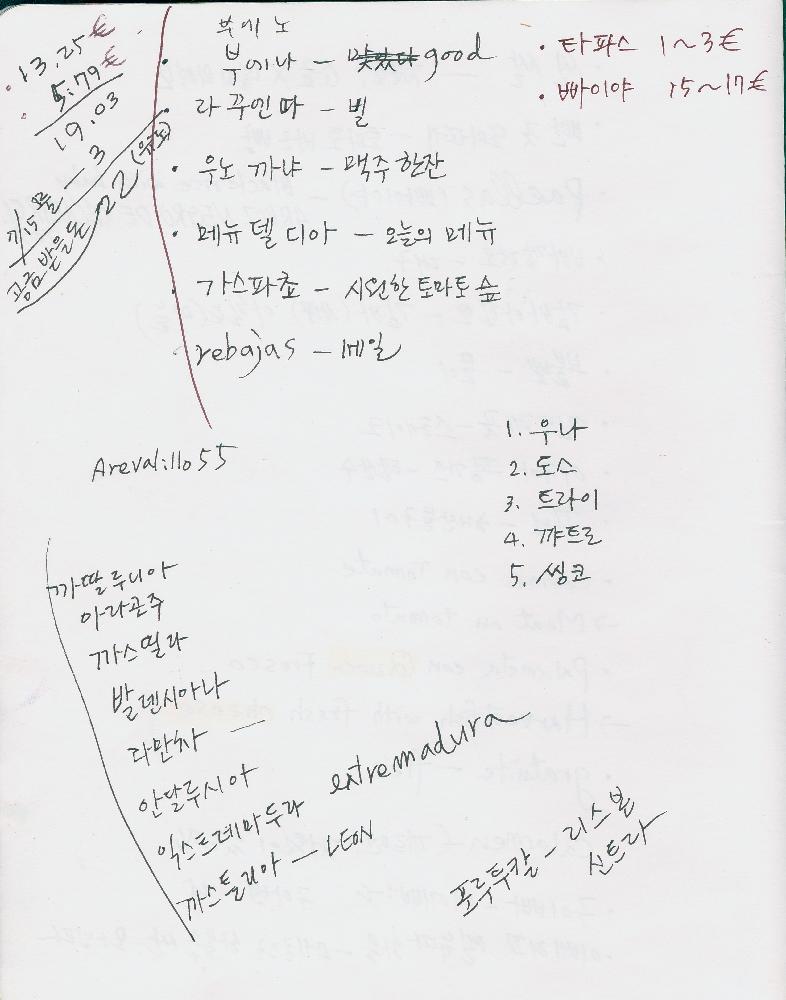 . 13.25€
. 5.79€
19.03
7/15 물 — 3
공금 받을돈 22 (유로)
부에노
· 부에나 - 맛있다 good
· 라 꾸엔따 - 벨
· 우노 까냐 - 맥주 한잔
· 메뉴 델 디아 - 오늘의 메뉴
· 가스파쵸 - 시원한 토마토 숲
· rebajas - 세일
· 타파스 1~3€
· 빠이야 15~17€
Arevalillo 55
1. 우나
2. 도스
3. 트라이
4. 꺄트로
5. 씽코
까딸루니아
아라곤주
까스띨라
발렌시아나
라만차 —
안달루시아
익스트레마두라 extremadura
까스틸리아 - LEON
포루투칼 - 리스본
신트라